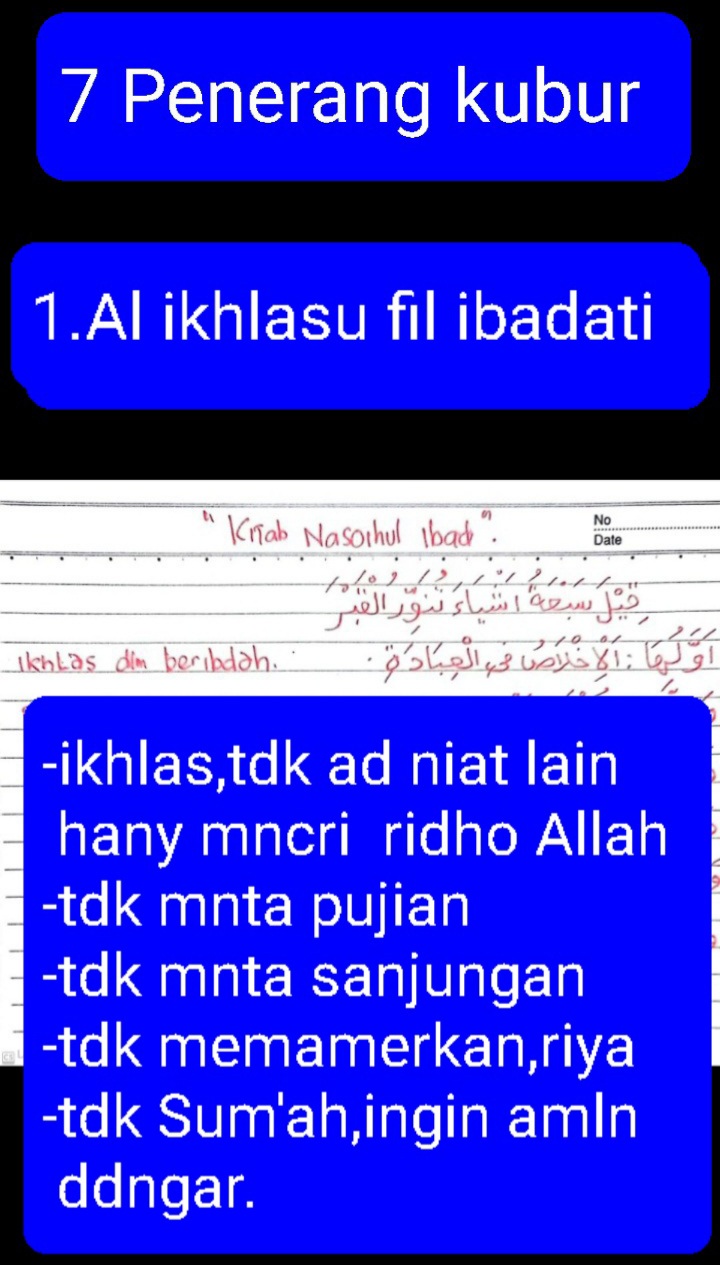 7 Penerang kubur
1.Al ikhlasu fil ibadati
" Kitab Nasoihul Ibad ".
No
Date
قِيْلَ سَبْعَةُ اَشْيَاءَ تُنَوِّرُ الْقَبْرَ
اَوَّلُهَا : اَلْاِخْلَاصُ فِى الْعِبَادَةِ .
ikhLas dlm beribdah.
-ikhlas,tdk ad niat lain
hany mncri ridho Allah
-tdk mnta pujian
-tdk mnta sanjungan
-tdk memamerkan,riya
-tdk Sum'ah,ingin amln
ddngar.